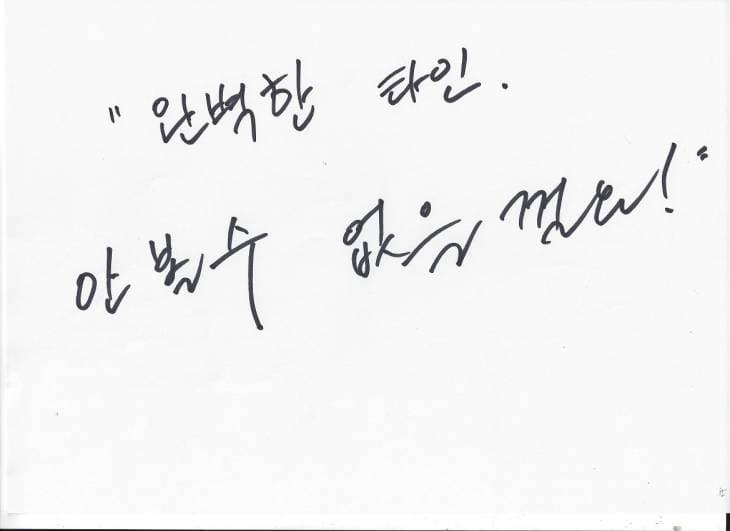 "완벽한 타인.
안볼수 없을껄요!"